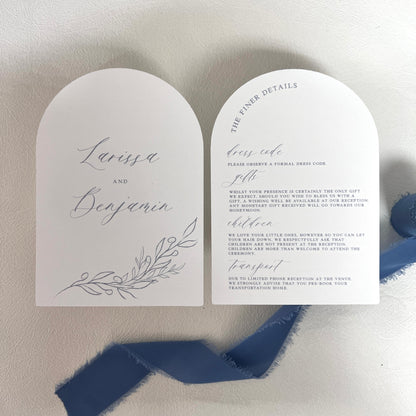 Larissa
AND
Benjamin
THE FINER DETAILS
dress code
PLEASE OBSERVE A FORMAL DRESS CODE.
gifts
WHILST YOUR PRESENCE IS CERTAINLY THE ONLY GIFT
WE EXPECT, SHOULD YOU WISH TO BLESS US WITH A
GIFT, A WISHING WELL WILL BE AVAILABLE AT OUR RECEPTION.
ANY MONETARY GIFT RECEIVED WILL GO TOWARDS OUR
HONEYMOON.
children
WE LOVE YOUR LITTLE ONES, HOWEVER SO YOU CAN LET
YOUR HAIR DOWN, WE RESPECTFULLY ASK THAT
CHILDREN ARE NOT PRESENT AT THE RECEPTION.
CHILDREN ARE MORE THAN WELCOME TO ATTEND THE
CEREMONY.
transport
DUE TO LIMITED PHONE RECEPTION AT THE VENUE,
WE STRONGLY ADVISE THAT YOU PRE-BOOK YOUR
TRANSPORTATION HOME.